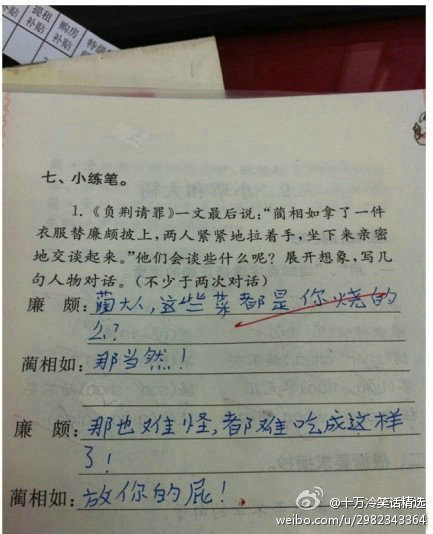 提租
补贴
购房
补贴
特级
七、小练笔。
1.《负荆请罪》一文最后说:“蔺相如拿了一件
衣服替廉颇披上,两人紧紧地拉着手,坐下来亲密
地交谈起来。”他们会谈些什么呢?展开想象,写几
句人物对话。(不少于两次对话)
廉 颇:蔺大人,这些菜都是你烧的
么?
蔺相如:那当然!
廉 颇:那也难怪,都难吃成这样
了!
蔺相如:放你的屁!
@十万冷笑话精选
weibo.com/u/2982343364